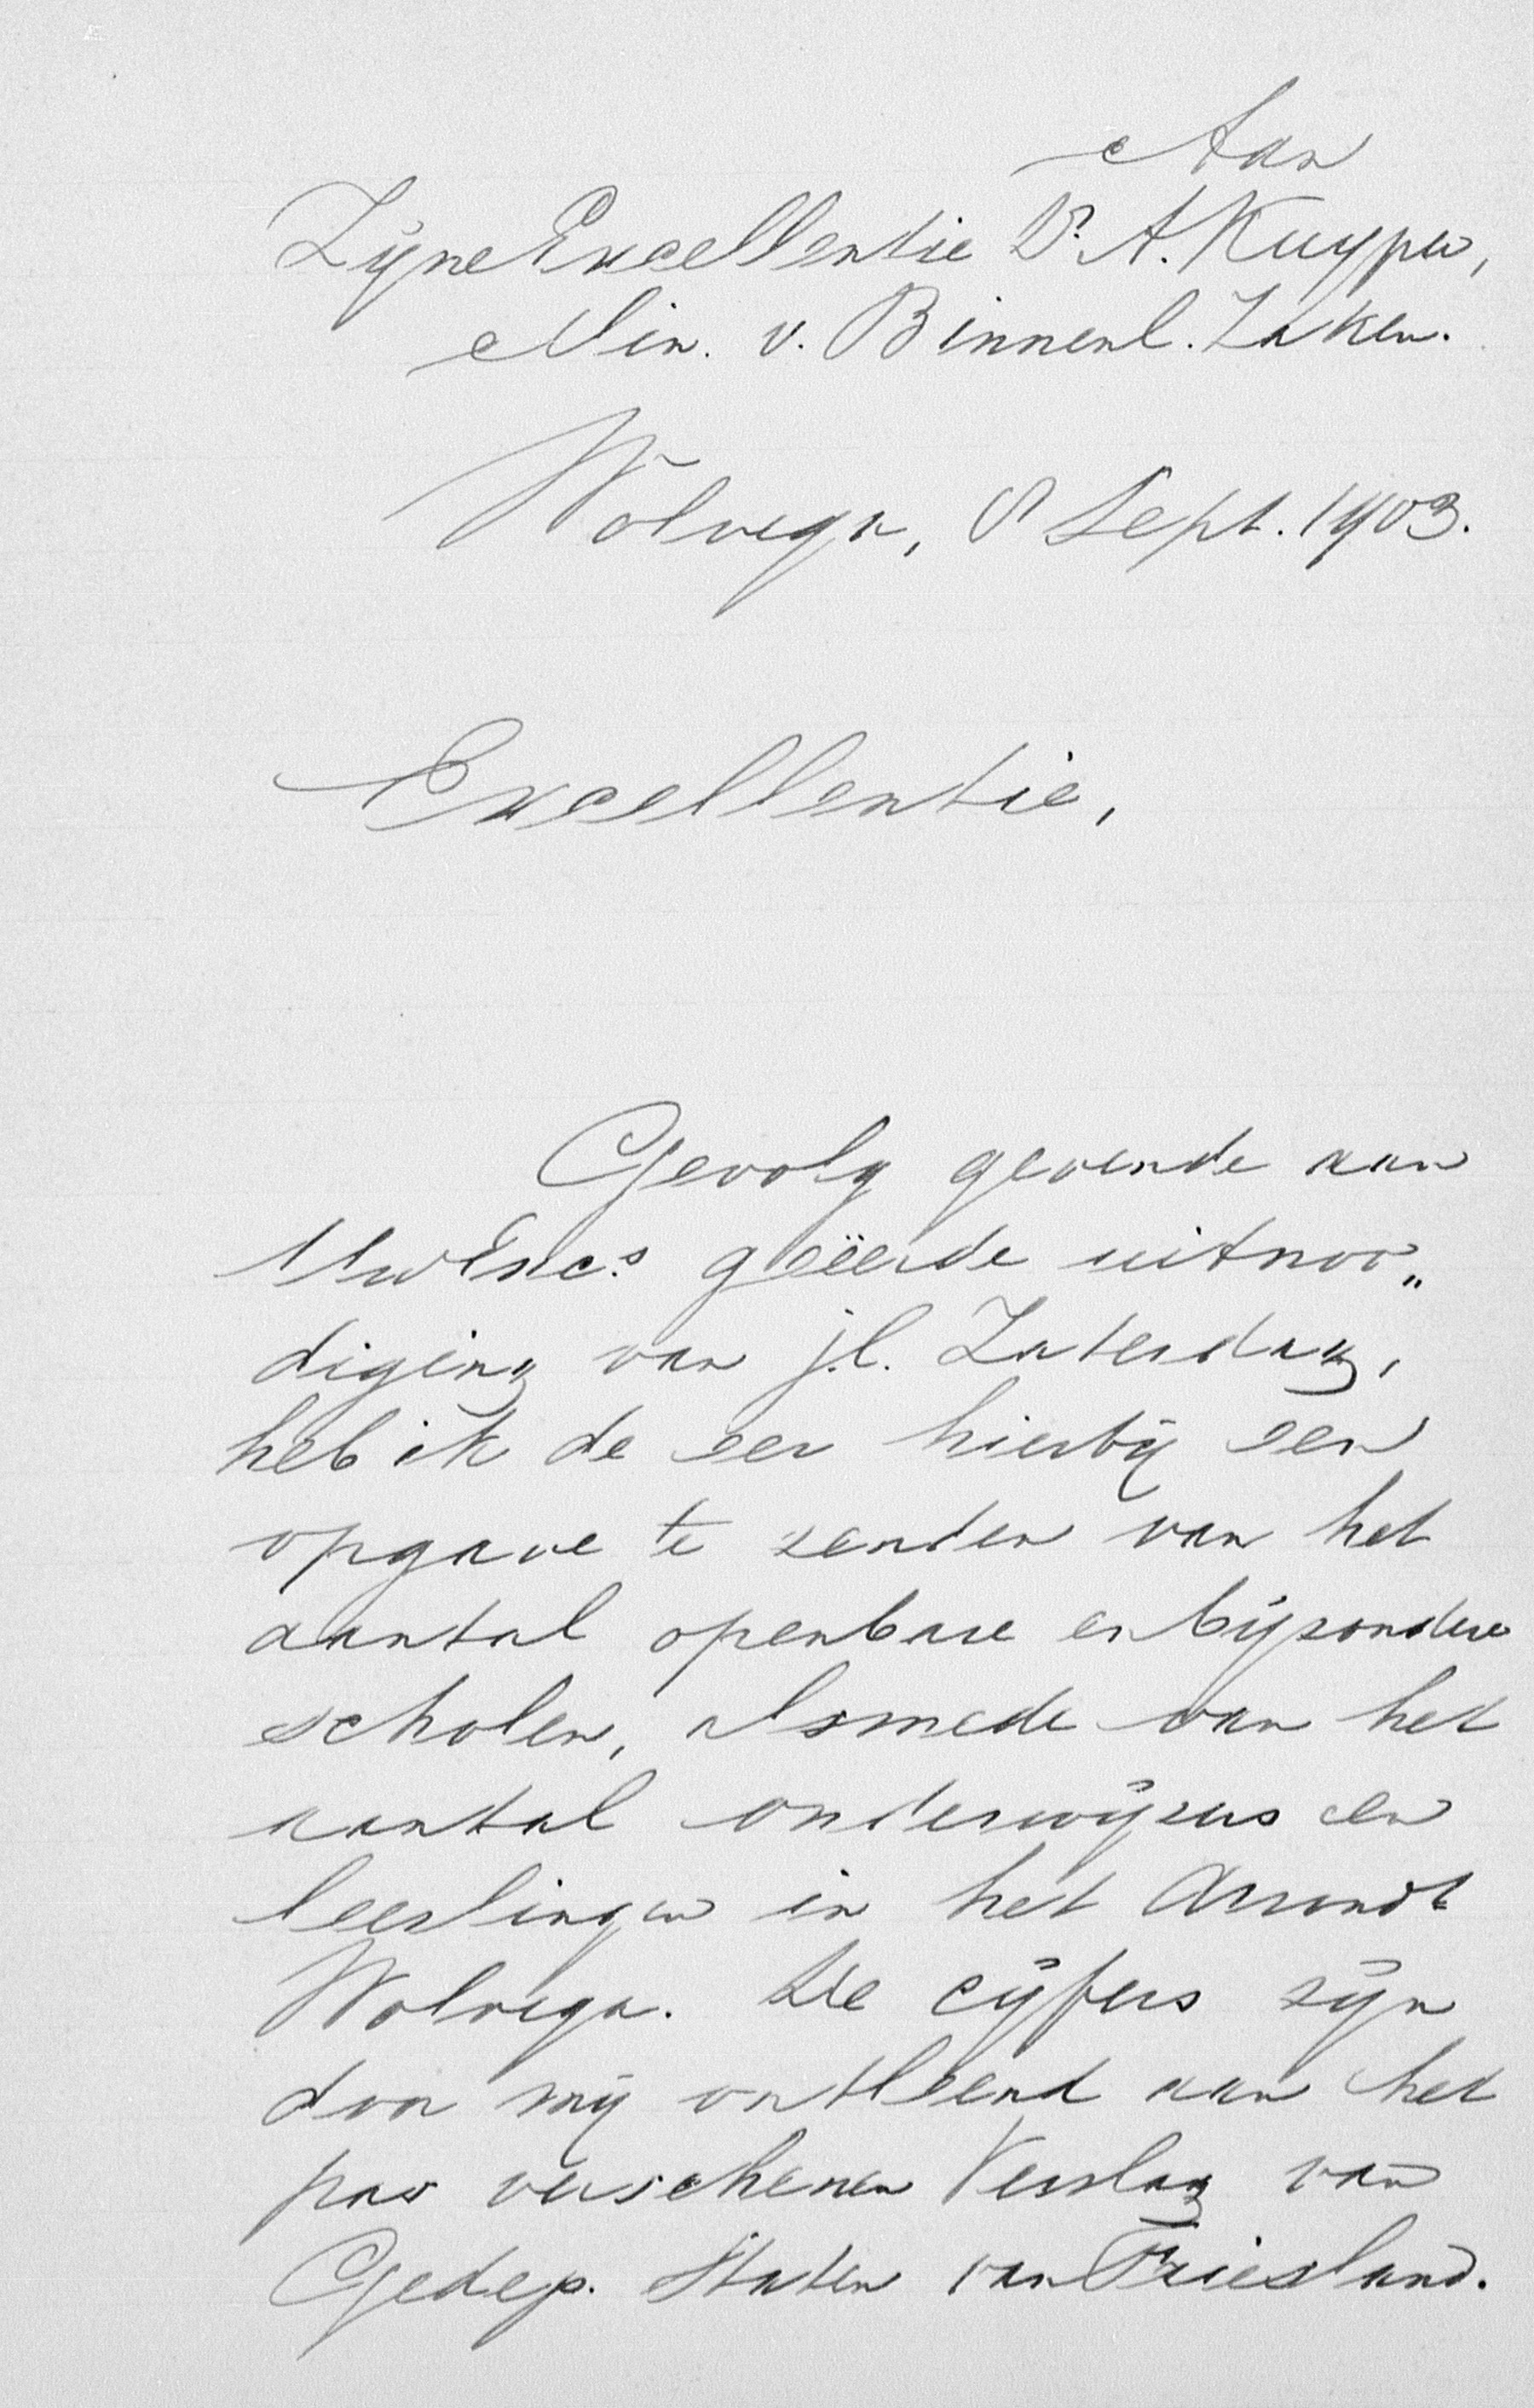 Aan
Zijne Excellentie Dr. A. Kuyper,
Min. v. Binnenl. Zaken.
Wolvega, 8 Sept. 1903.
Excellentie,
Gevolg gevende aan
Uw Exc.s geëerde uitnoo„
diging van j.l. Zaterdag,
heb ik de eer hierbij een
opgave te zenden van het
aantal openbare en bijzondere
scholen, alsmede van het
aantal onderwijzers en
leerlingen in het Arrondt
Wolvega. De cijfers zijn
door mij ontleend aan het
pas verschenen Verslag van
Gedep. Staten van Friesland.